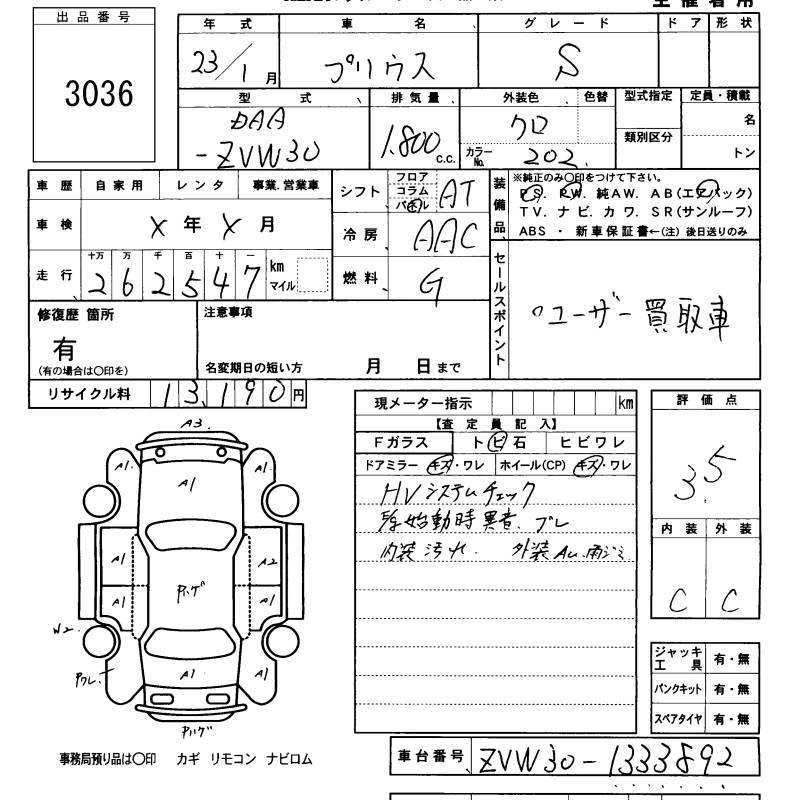 出品番号
3036
年式 車名 グレード ドア 形状
23/1月 プリウス S
型式 排気量 外装色 色替 型式指定 定員・積載
DAA
-ZVW30 1,800 C.C. クロ 類別区分 名
カラーNo. 202 トン
車歴 自家用 レンタ 事業.営業車
シフト フロア コラム パネル AT
装備品 ※純正のみ〇印をつけて下さい。
PS. PW. 純AW. AB(エアバック)
TV. ナビ. カワ. SR(サンルーフ)
ABS ・ 新車保証書←(注) 後日送りのみ
車検 X年 X月
冷房 AAC
走行 十万 万 千 百 十 一
262547 km マイル
燃料 G
セールスポイント
ユーザー買取車
修復歴 箇所
有
(有の場合は〇印を)
注意事項
名変期日の短い方 月 日まで
リサイクル料 13,190円
現メーター指示 km
【査定員記入】
Fガラス トビ石 ヒビワレ
ドアミラー キズ・ワレ ホイール(CP) キズ・ワレ
HVシステムチェック
始動時異音、ブレ
内装汚れ. 外装AU.雨ジミ
評価点
3.5
内装 外装
C C
A3.
A1 A1 A1
A1 A2
A1 A1
W2
A1 A1
ジャッキ工具 有・無
パンクキット 有・無
スペアタイヤ 有・無
事務局預り品は〇印 カギ リモコン ナビロム
車台番号 ZVW30-1333892